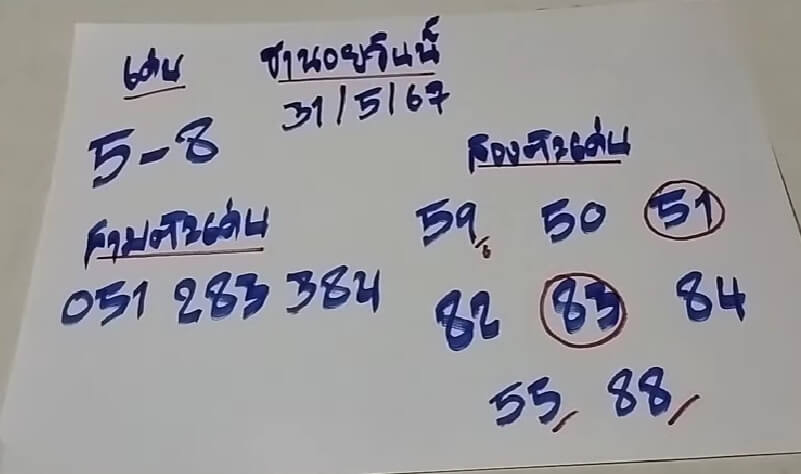 เด่น
ฮานอยวันนี้
31/5/67
5-8
สามตัวเด่น
051 283 384
สองตัวเด่น
59 50 51
82 83 84
55 88